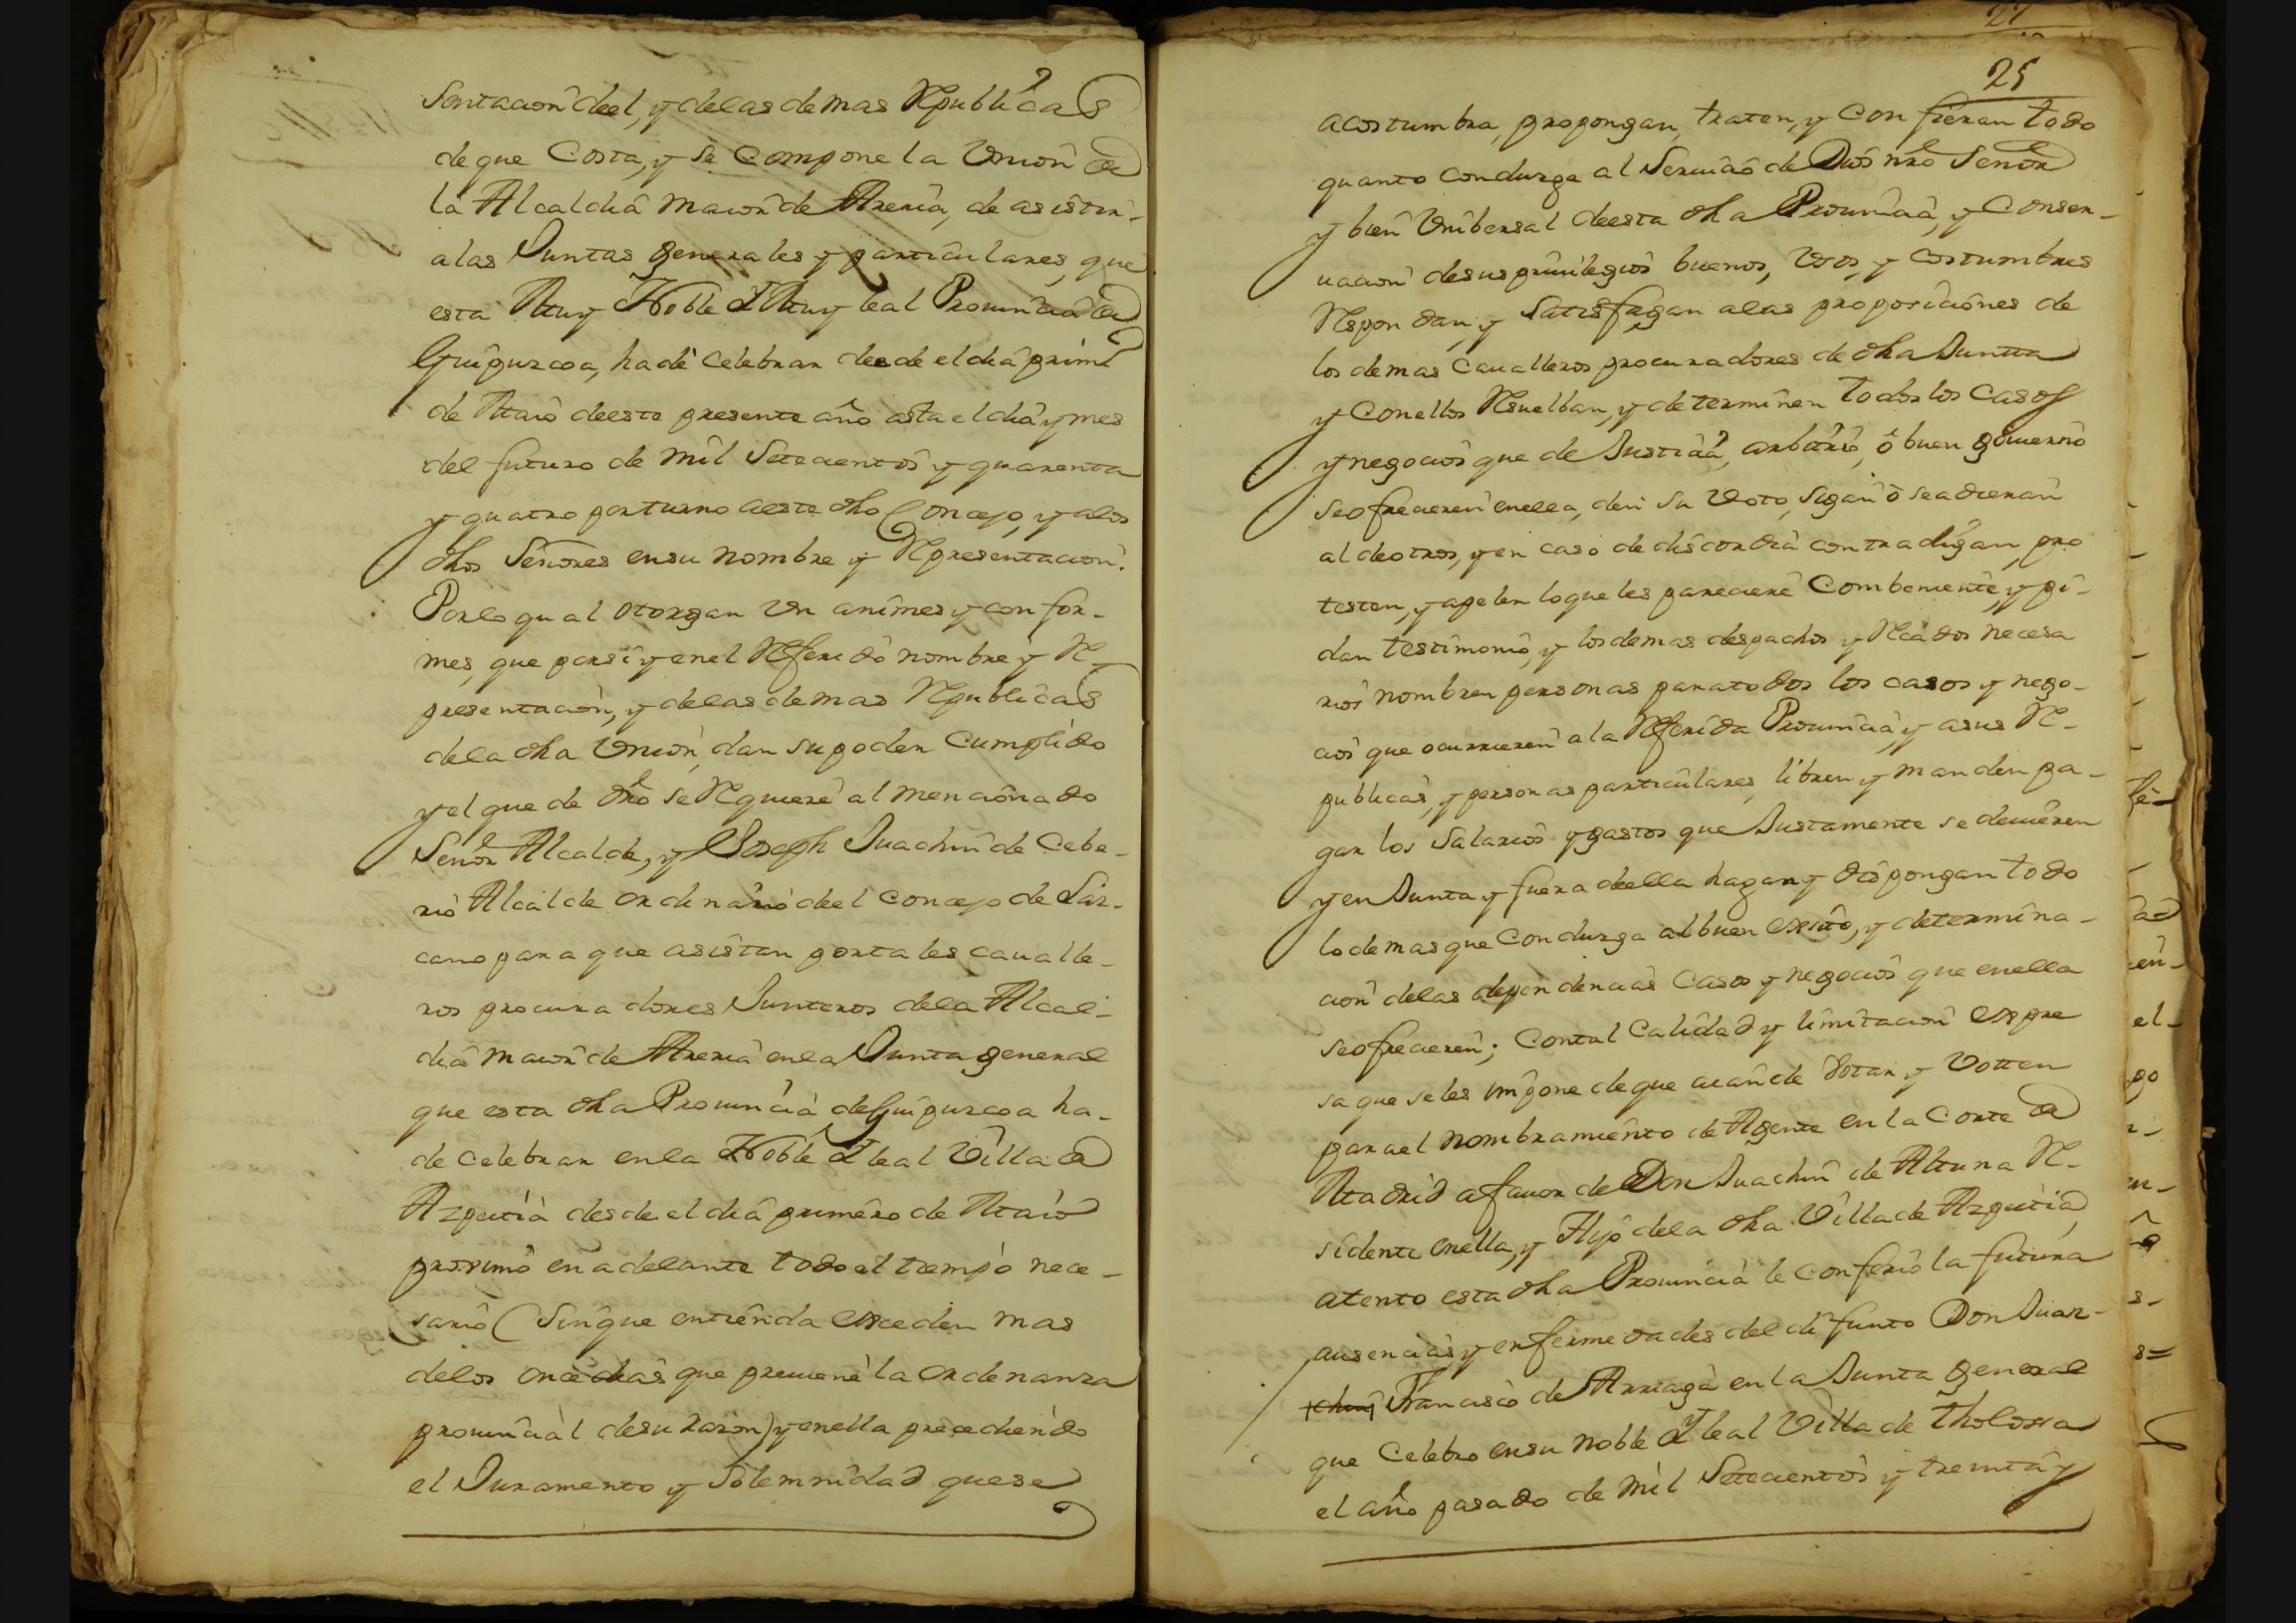 sentacion deel, y delas demas Republicas
de que Costa, y se compone la Union de
la Alcaldia maior de Areria, de asistir
alas Juntas generales y particulares, que
esta Muy Noble y Muy leal Prouincia de
Guipuzcoa, ha de celebrar desde el dia prim.
de Maio deeste presente año asta el dia y mes
del futuro de mil Setecientos y quarenta
y quatro por turno aeste dho Concejo, y alos
dhos Señores ensu nombre y Representacion.
Porlo qual otorgan Un animes y confor-
mes, que porsi y enel Referido nombre y Re-
presentacion, y delas demas Republicas
dela dha Union, dan su poder Cumplido
y el que de dro se Requiere al mencionado
Señor Alcalde, y Joseph Juachin de Cebe-
rio Alcalde ordinario deel Concejo de Laz-
cano para que asistan portales caualle-
ros procuradores Junteros dela Alcal-
dia maior de Areria enla Junta general
que esta dha Prouincia deGuipuzcoa ha-
de celebrar enla Noble y leal Villa de
Azpeitia desde el dia primero de Maio
proximo en adelante todo el tiempo nece-
sario (Sinque entienda exceden mas
delos once dias que preuiene la ordenanza
prouincial desu razon) y enella precediendo
el Juramento y Solemnidad quese
27
25
acostumbra, propongan, traten, y confieran todo
quanto conduzga al Seruicio de Dios nro Señor
y bien Unibersal deesta dha Prouincia, y Conser-
uacion desus priuilegios buenos, Usos, y costumbres
Respondan, y satisfagan alas proposiciones de
los demas Caualleros procuradores de dha Juntta
y Conellos Resuelban, y determinen todos los Casos
y negocios que de Justicia, arbitrio, ô buen gouierno
seofrecieren enella, den su Voto, sigan ô seadieran
al deotros, y en caso de discordia contradigan, pro
testen, y apelen loque les pareciere Combeniente, y pi-
dan testimonio, y los demas despachos y Recados necesa
rios nombren personas paratodos los casos y nego-
cios que ocurrieren ala Referida Prouincia, y asus Re-
publicas, y personas particulares, libren y manden pa-
gar los Salarios y gastos que Justamente se deuieren
y en Junta y fuera deella hagan y dispongan todo
lo demas que Conduzga albuen exsito, y determina-
cion delas dependencias Casos y negocios que enella
seofrecieren; Contal Calidad y limitacion expre
sa que seles impone deque aiande Votar y Votten
parael nombramiento de Agente en la Corte de
Madrid afauor de Don Juachin de Altuna Re-
sidente enella, y Hijo dela dha Villa de Azpeitia,
atento esta dha Prouincia le confirio la futura
ausencias, y enfermedades del difunto Don Juar-
chin Francisco de Arriaga en la Junta general
que Celebro ensu noble y leal Villa de Tholossa
el año pasado de mil Setecientos y treinta y